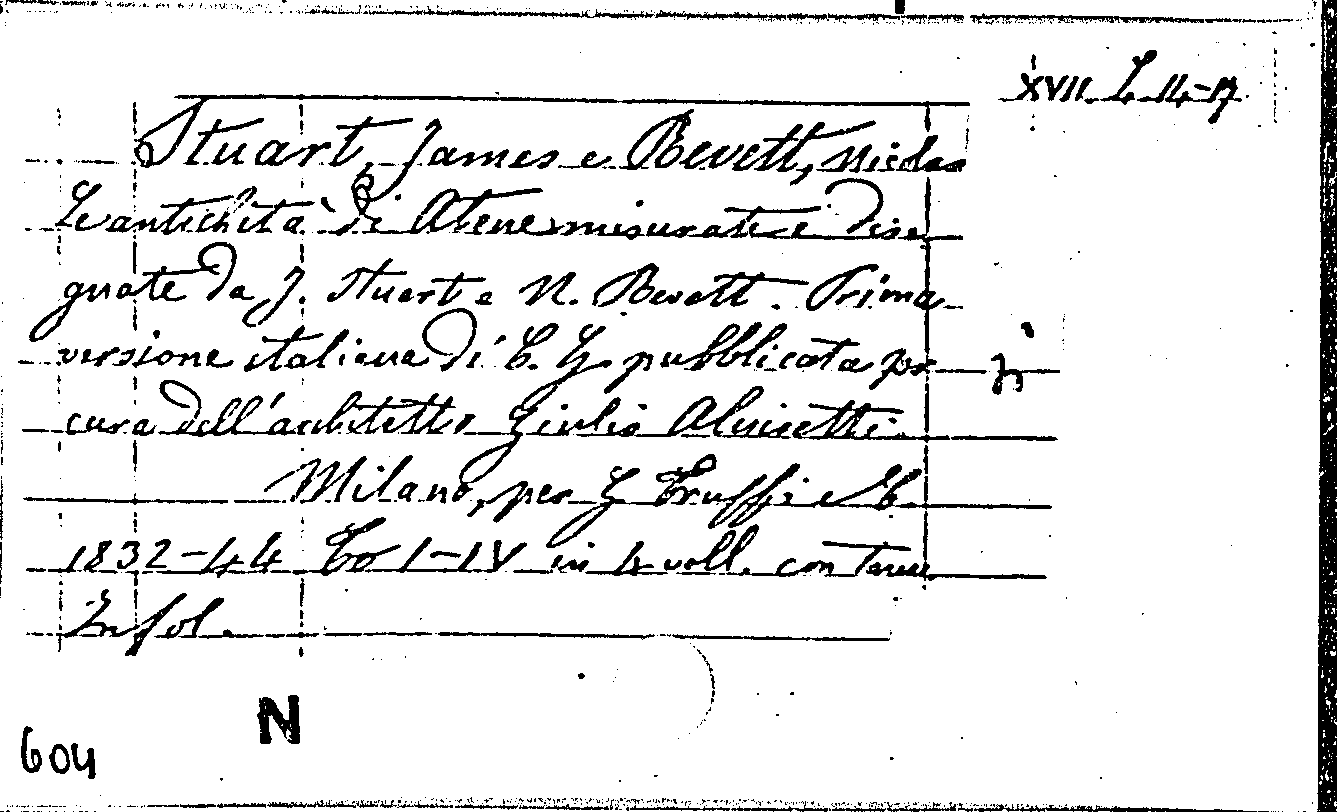 XVII. L. 14-17
Stuart, James e Revett, Nicolas
Le antichità di Atene misurate e dise
gnate da J. Stuart e N. Revett. Prima
versione italiana di C. G. pubblicata per
cura dell'architetto Giulio Aluisetti.
Milano, per G Truffi e C.
1832-44 To I-IV in 4 voll. con tavv.
In fol.
N
604